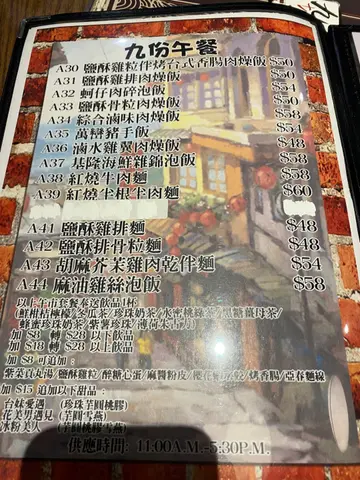 九份午餐
A30 鹽酥雞粒伴烤台式香腸肉燥飯 $50
A31 鹽酥雞排肉燥飯 $50
A32 蚵仔肉碎泡飯 $54
A33 鹽酥骨粒肉燥飯 $50
A34 綜合滷味肉燥飯 $58
A35 萬巒豬手飯 $54
A36 滷水雞翼肉燥飯 $48
A37 基隆海鮮雜錦泡飯 $58
A38 紅燒牛肉麵 $58
A39 紅燒半根半肉麵 $60
A41 鹽酥雞排麵 $48
A42 鹽酥排骨粒麵 $48
A43 胡麻芥茉雞肉乾伴麵 $54
A44 麻油雞絲泡飯 $58
以上午市套餐奉送飲品1杯
(鮮柑桔檸檬/冬瓜茶/珍珠奶茶/水蜜桃綠茶/黑糖薑母茶/
蜂蜜珍珠奶茶/紫薯珍珠/薄荷朱古力)
加 $8 轉 $28 以下飲品
加 $18 轉 $28 以上飲品
加 $8 可追加:
紫菜貢丸湯/鹽酥雞粒/醉糖心蛋/麻醬粉皮/ /烤香腸/亞春麵線
加 $15 追加以下甜品:
台妹愛遇 (珍珠芋圓桃膠)
花美男遇見 (芋圓雪燕)
冰粉美人 (芋圓桃膠雪燕)
供應時間: 11:00A.M.-5:30P.M.